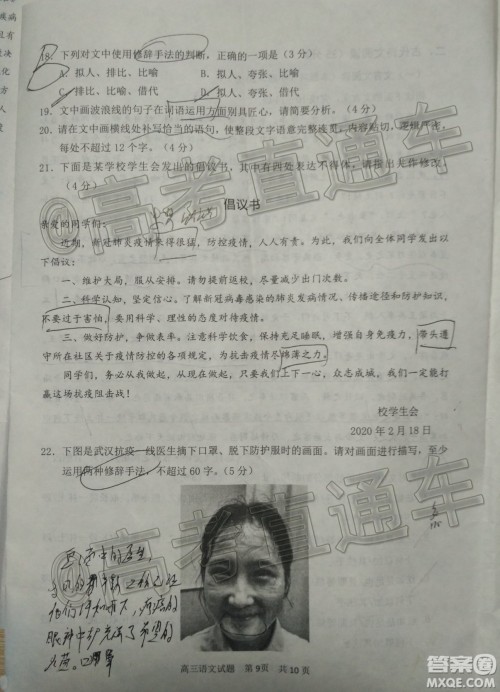 18. 下列对文中使用修辞手法的判断，正确的一项是（3分）
A. 拟人、排比、比喻 B. 拟人、夸张、比喻
C. 排比、比喻、借代 D. 拟人、夸张、借代
19. 文中画波浪线的句子在词语运用方面别具匠心，请简要分析。（4分）
20. 请在文中画横线处补写恰当的语句，使整段文字语意完整连贯，内容贴切，逻辑严密，
每处不超过12个字。（4分）
21. 下面是某学校学生会发出的倡议书，其中有四处表达不得体，请找出并作修改。
（4分）
倡议书
亲爱的同学们：
近期，新冠肺炎疫情来得很猛，防控疫情，人人有责。为此，我们向全体同学发出以
下倡议：
一、维护大局，服从安排。请勿提前返校，尽量减少出门次数。
二、科学认知，坚定信心。了解新冠病毒感染的肺炎发病情况、传播途径和防护知识，
不要过于害怕，要用科学、理性的态度对待疫情。
三、做好防护，争做表率。注意科学饮食，保持充足睡眠，增强自身免疫力，带头遵
守所在社区关于疫情防控的各项规定，为抗击疫情尽绵薄之力。
同学们，务必从我做起，从现在做起，只要我们上下一心，众志成城，我们一定能打
赢这场抗疫阻击战！
校学生会
2020年2月18日
22. 下图是武汉抗疫一线医生摘下口罩、脱下防护服时的画面。请对画面进行描写，至少
运用两种修辞手法，不超过60字。（5分）
高三语文试题 第9页 共10页
@高考直通车
@高考直通车
答案圈